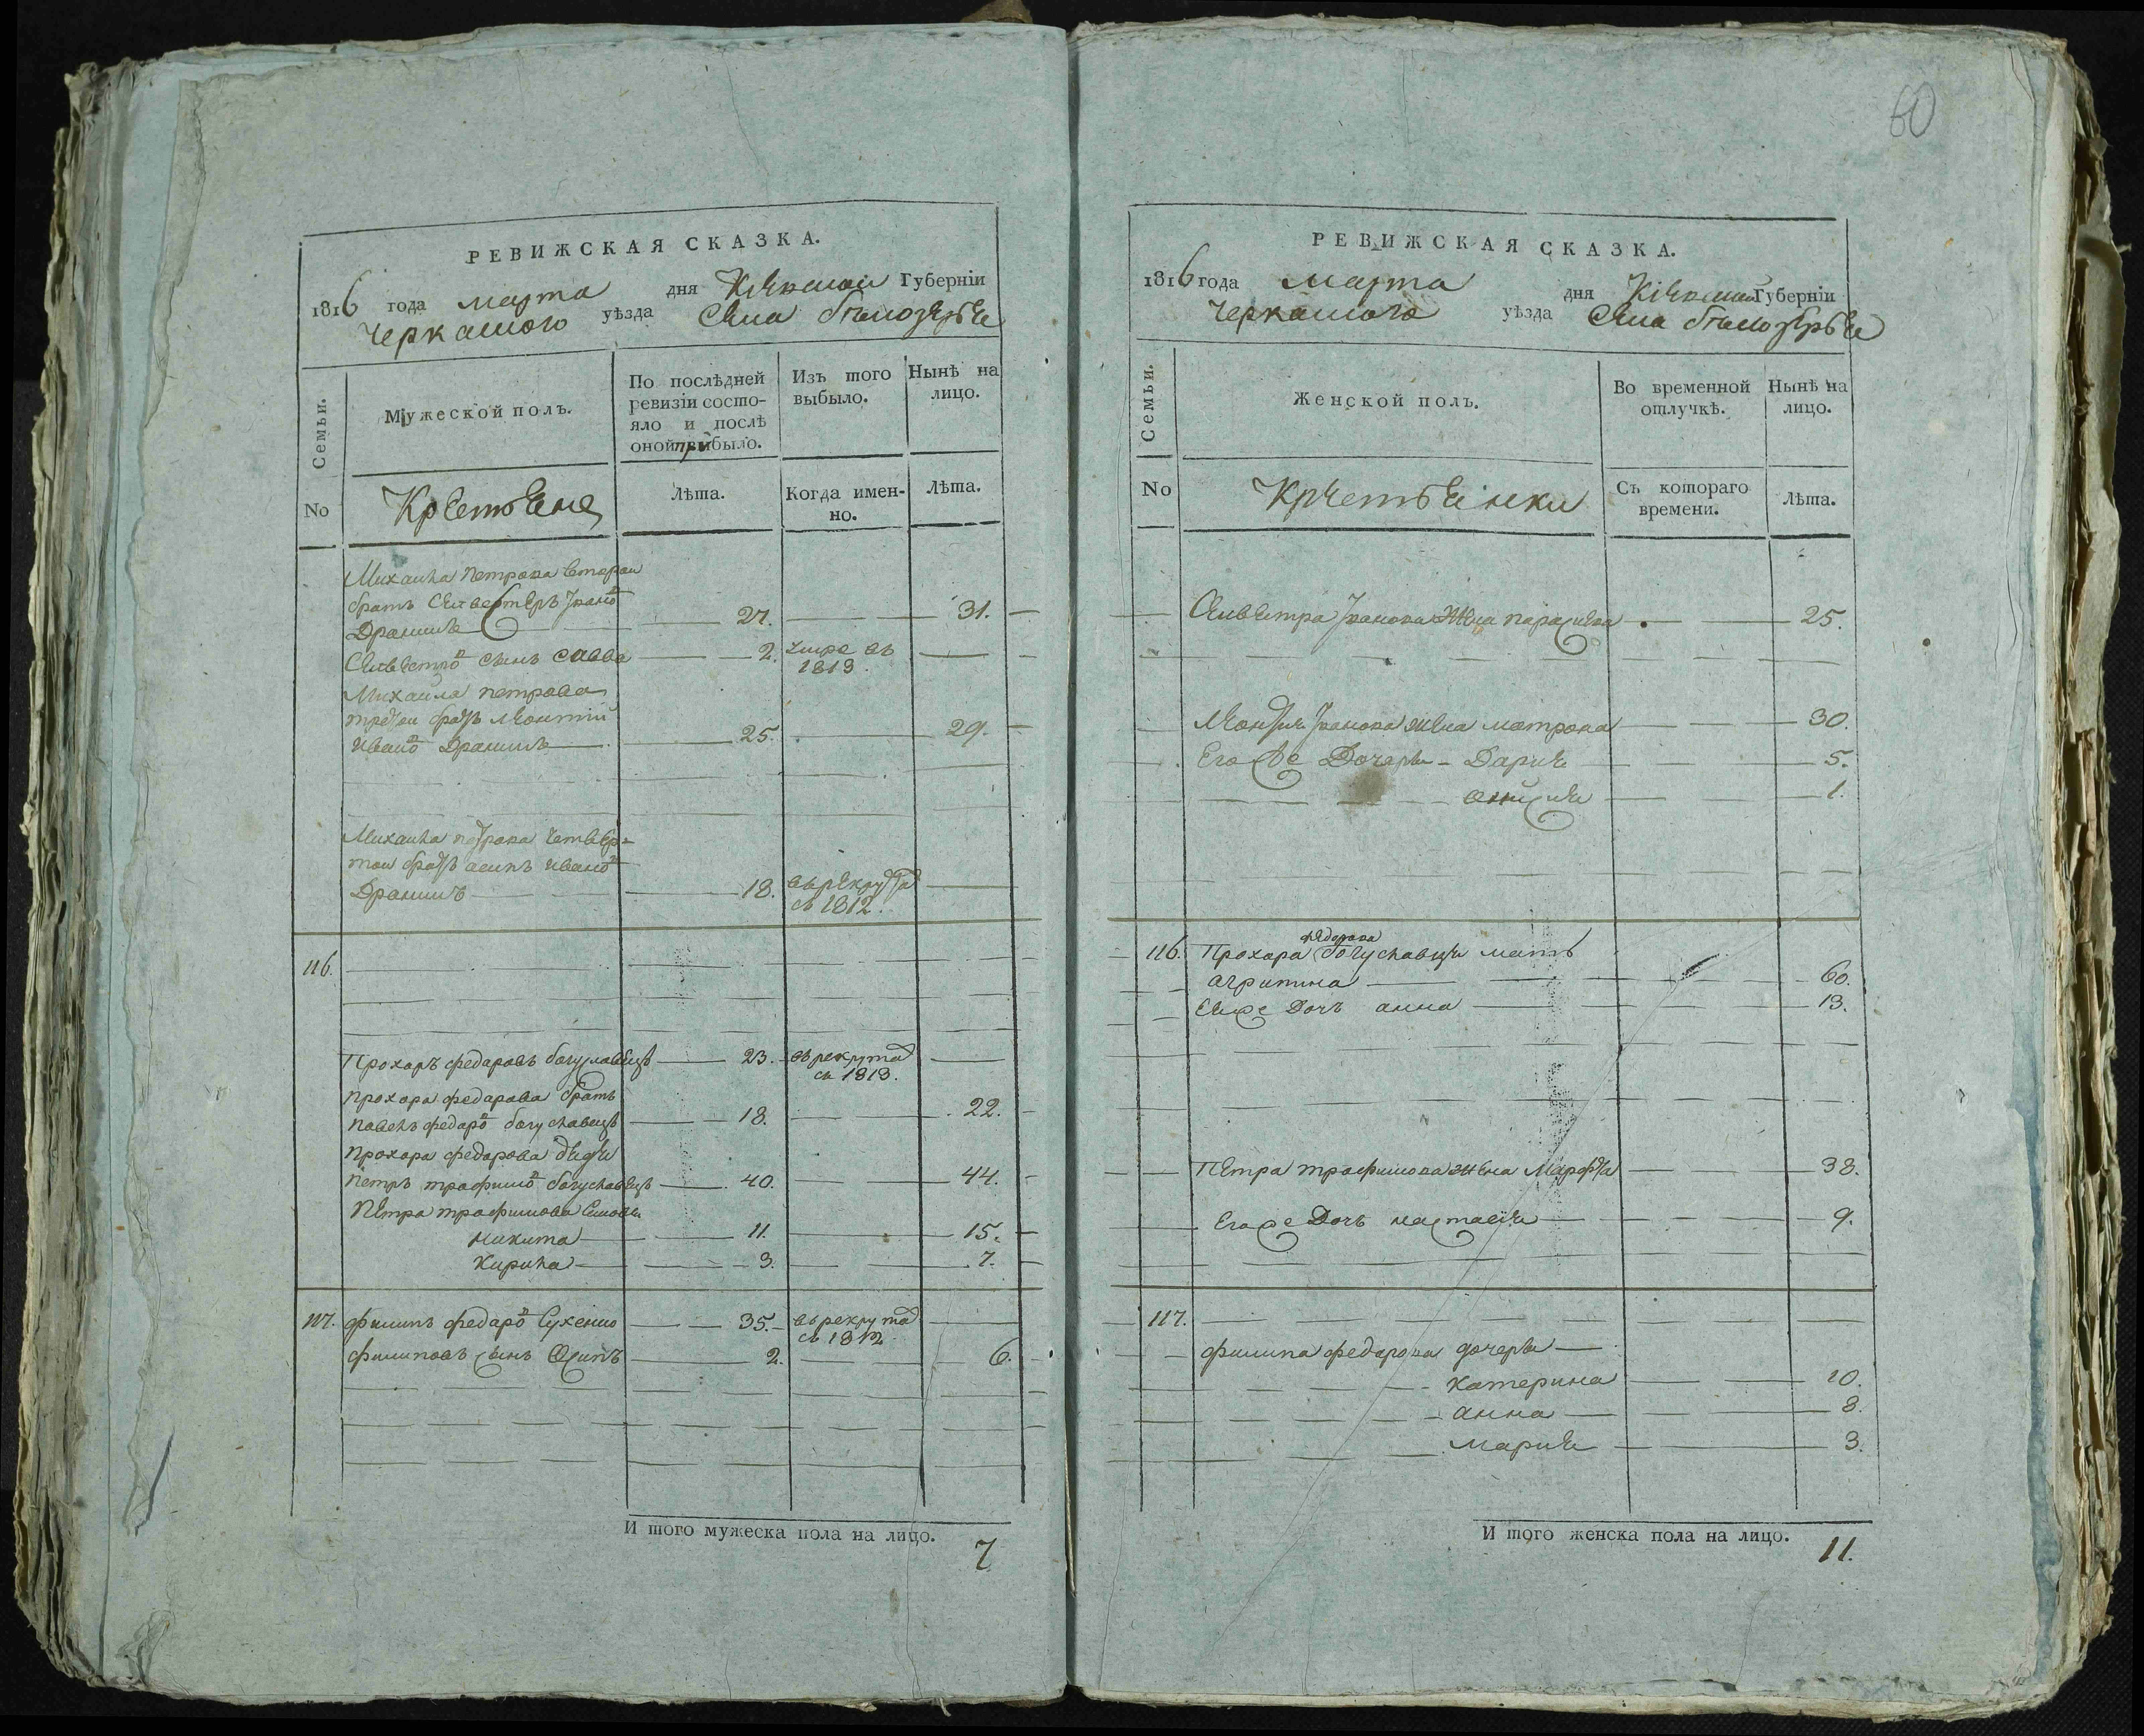 60
РЕВИЖСКАЯ СКАЗКА.
1816 года марта дня Кіевской Губерніи
Черкаского уѣзда Села бѣлозерья
Семьи.
Мужеской полъ.
По послѣдней ревизіи состо-
яло и послѣ
оной прибыло.
Изъ того выбыло.
Нынѣ на лицо.
No
Крестьяне
Лѣта.
Когда имен-
но.
Лѣта.
Михаила петрова второи
братъ Селивестеръ Ивано
27. 31.
Селивестро сынъ савва 2. умре въ 1813.
Михаила петрова
третеи братъ леонтий
Ивано 25. 29.
Михаила петрова четвер=
тои братъ асипъ Ивано
18. въ рекрута съ 1812.
116.
Прохоръ федаровъ богуславецъ 23. въ рекрута съ 1813.
прохора федарова братъ
павелъ федаро богуславецъ 18. 22.
прохора федарова дядя
петръ трафимо богуславецъ 40. 44.
Петра трафимова сыновья
никита 11. 15.
Кирила 3. 7.
117. филипъ федаро Сухенко 35. въ рекрута съ 1812
филиповъ сынъ Осипъ 2. 6.
И того мужеска пола на лицо. 7
РЕВИЖСКАЯ СКАЗКА.
1816 года марта дня Кіевской Губерніи
Черкаского уѣзда Села бѣлозерья
Семьи.
Женской полъ.
Во временной отлучкѣ.
Нынѣ на лицо.
No
Крестьянки
Съ котораго времени.
Лѣта.
Селивестра Иванова жена параскева 25.
Леонтия Иванова жена матрона 30.
Его же Дочеры Дария 5.
1.
федорова
116. Прохара богуславця мать
агрипина 60.
Ея же Дочъ анна 13.
Петра трафимова жена Марфа 38.
Его же Дочъ настасия 9.
117.
филипа федарова дочеры
катерина 10.
анна 8.
мария 3.
И того женска пола на лицо. 11.